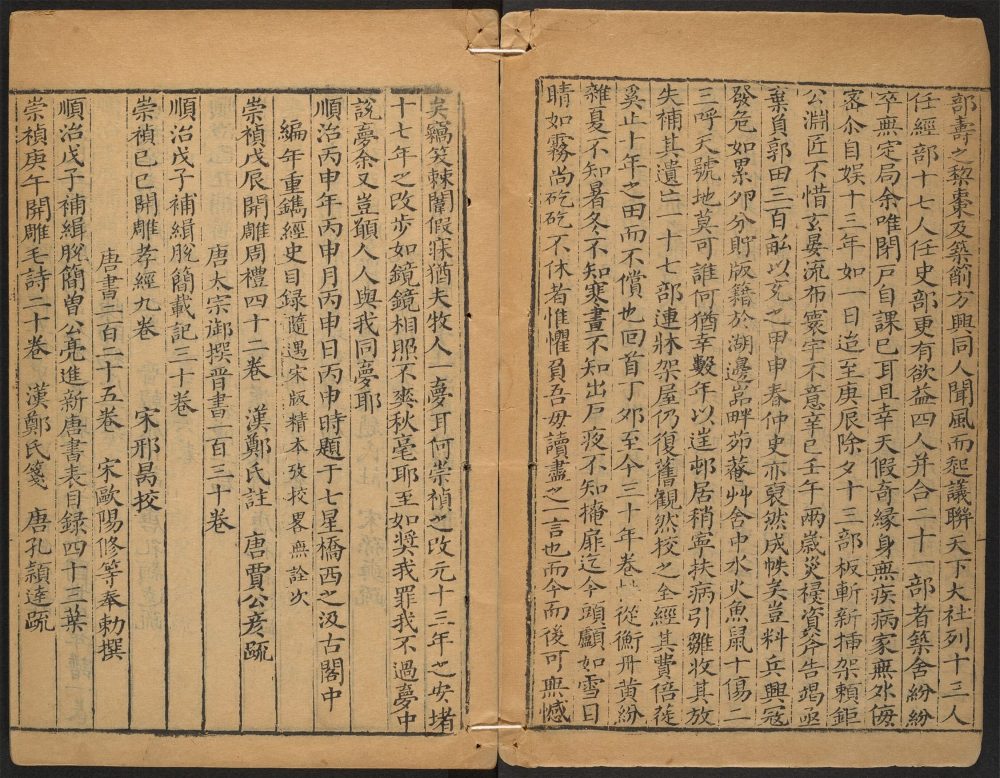 部壽之棃棗及築削方興同人聞風而起議聯天下大社列十三人
任經部十七人任史部更有欲益四人并合二十一部者築舍紛紛
卒無定局余唯閉戸自課已耳且幸天假奇縁身無疾病家無外侮
宻尒自娱十三年如一日迨至庚辰除夕十三部板斬新揷架賴鉅
公淵匠不惜玄晏流布寰宇不意辛巳壬午兩歲災祲資斧告竭亟
棄負郭田三百畝以充之甲申春仲史亦裒然成帙矣豈料兵興冦
發危如累夘分貯版籍於湖邊岩畔茆菴艸舍中水火魚鼠十傷二
三呼天號地莫可誰何猶幸數年以徃邨居稍寧扶病引雛收其放
失補其遺亡一十七部連牀架屋仍復舊觀然校之全經其費倍蓰
奚止十年之田而不償也回首丁夘至今三十年卷帙從衡丹黄紛
雜夏不知暑冬不知寒晝不知出戸夜不知掩扉迄今頭顱如雪目
睛如霧尚矻矻不休者惟懼負吾毋讀盡之一言也而今而後可無憾
矣竊笑棘闈假寐猶夫牧人一夢耳何崇禎之改元十三年之安堵
十七年之改步如鏡鏡相照不爽秋毫耶至如奬我罪我不過夢中
說夢余又豈願人人與我同夢耶
順治丙申年丙申月丙申日丙申時題于七星橋西之汲古閣中
編年重鐫經史目録隨遇宋版精本攷校畧無詮次
崇禎戊辰開雕周禮四十二卷 漢鄭氏註 唐賈公彦䟽
唐太宗御撰晉書一百三十卷
順治戊子補緝脫簡載記三十卷
崇禎己巳開雕孝經九卷 宋邢昺校
唐書二百二十五卷 宋歐陽修等奉勅撰
順治戊子補緝脫簡曽公亮進新唐書表目録四十三葉
崇禎庚午開雕毛詩二十卷 漢鄭氏箋 唐孔頴逹䟽